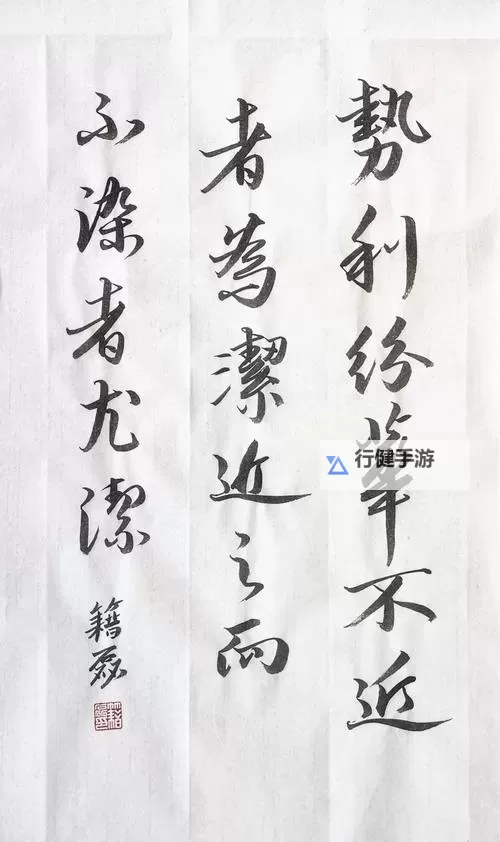 勢利紛華不近
者為潔近之而
不染者尤潔
籍磊
行健手游